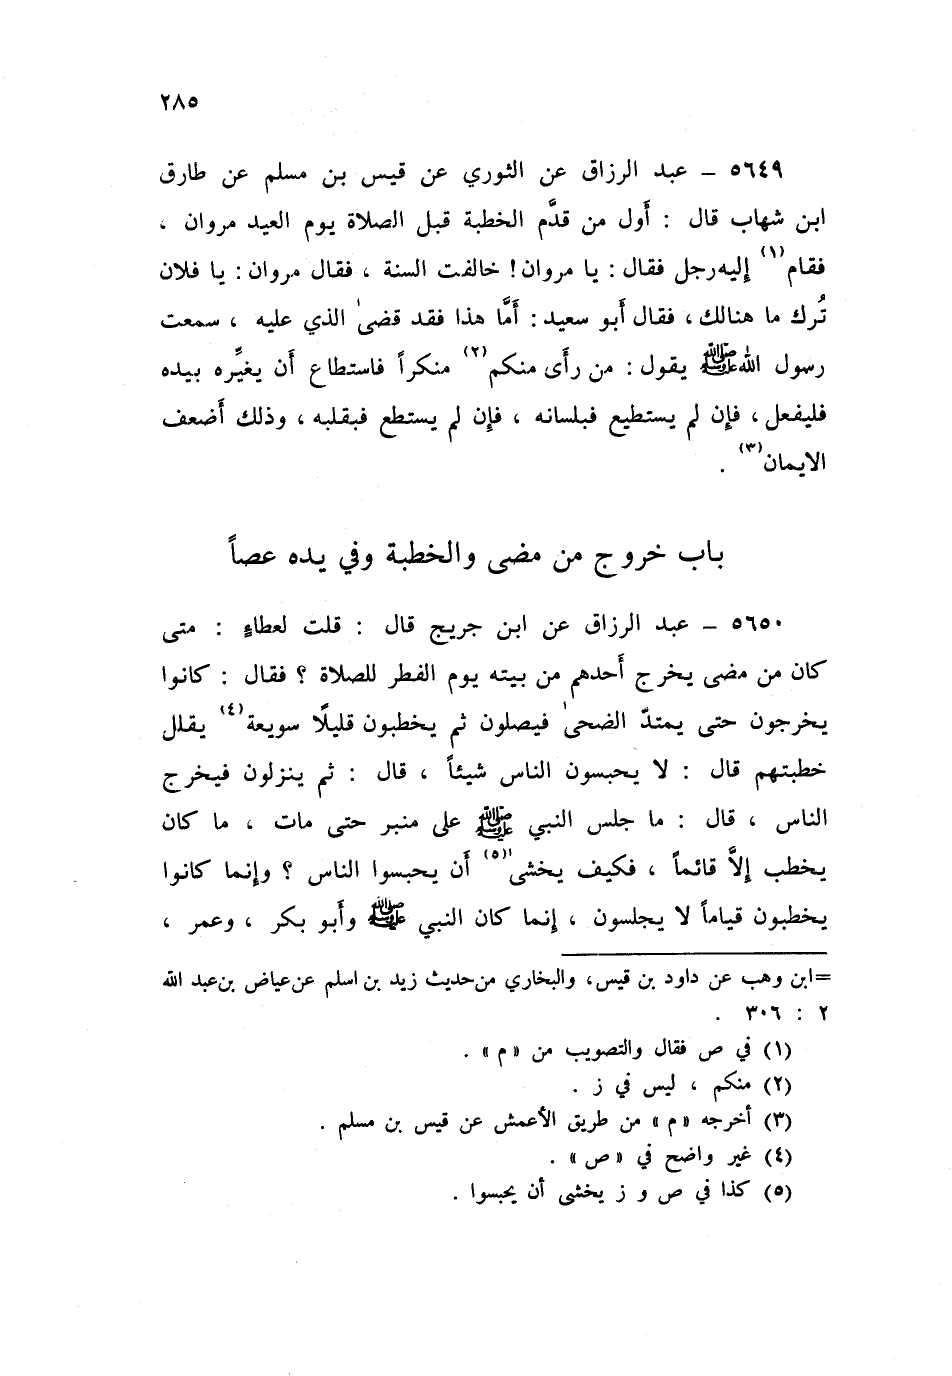 ٢٨٥
٥٦٤٩ ـ عبد الرزاق عن الثوري عن قيس بن مسلم عن طارق
ابن شهاب قال : أول من قدَّم الخطبة قبل الصلاة يوم العيد مروان ،
فقام(١) إليه رجل فقال : يا مروان! خالفت السنة ، فقال مروان : يا فلان
تُرك ما هنالك ، فقال أبو سعيد : أمَّا هذا فقد قضىٰ الذي عليه ، سمعت
رسول الله ﷺ يقول : من رأى منكم(٢) منكراً فاستطاع أن يغيِّره بيده
فليفعل ، فإن لم يستطيع فبلسانه ، فإن لم يستطع فبقلبه ، وذلك أضعف
الايمان(٣) .
باب خروج من مضى والخطبة وفي يده عصاً
٥٦٥٠ ـ عبد الرزاق عن ابن جريج قال : قلت لعطاءٍ : متى
كان من مضى يخرج أحدهم من بيته يوم الفطر للصلاة ؟ فقال : كانوا
يخرجون حتى يمتدّ الضحىٰ فيصلون ثم يخطبون قليلًا سويعة(٤) يقلل
خطبتهم قال : لا يحبسون الناس شيئاً ، قال : ثم ينزلون فيخرج
الناس ، قال : ما جلس النبي ﷺ على منبر حتى مات ، ما كان
يخطب إلاَّ قائماً ، فكيف يخشىٰ(٥) أن يحبسوا الناس ؟ وإنما كانوا
يخطبون قياماً لا يجلسون ، إنما كان النبي ﷺ وأبو بكر ، وعمر ،
=ابن وهب عن داود بن قيس، والبخاري من حديث زيد بن اسلم عن عياض بن عبد الله
٢ : ٣٠٦ .
(١) في ص فقال والتصويب من «م» .
(٢) منكم ، ليس في ز .
(٣) أخرجه «م» من طريق الأعمش عن قيس بن مسلم .
(٤) غير واضح في «ص» .
(٥) كذا في ص و ز يخشى أن يحبسوا .